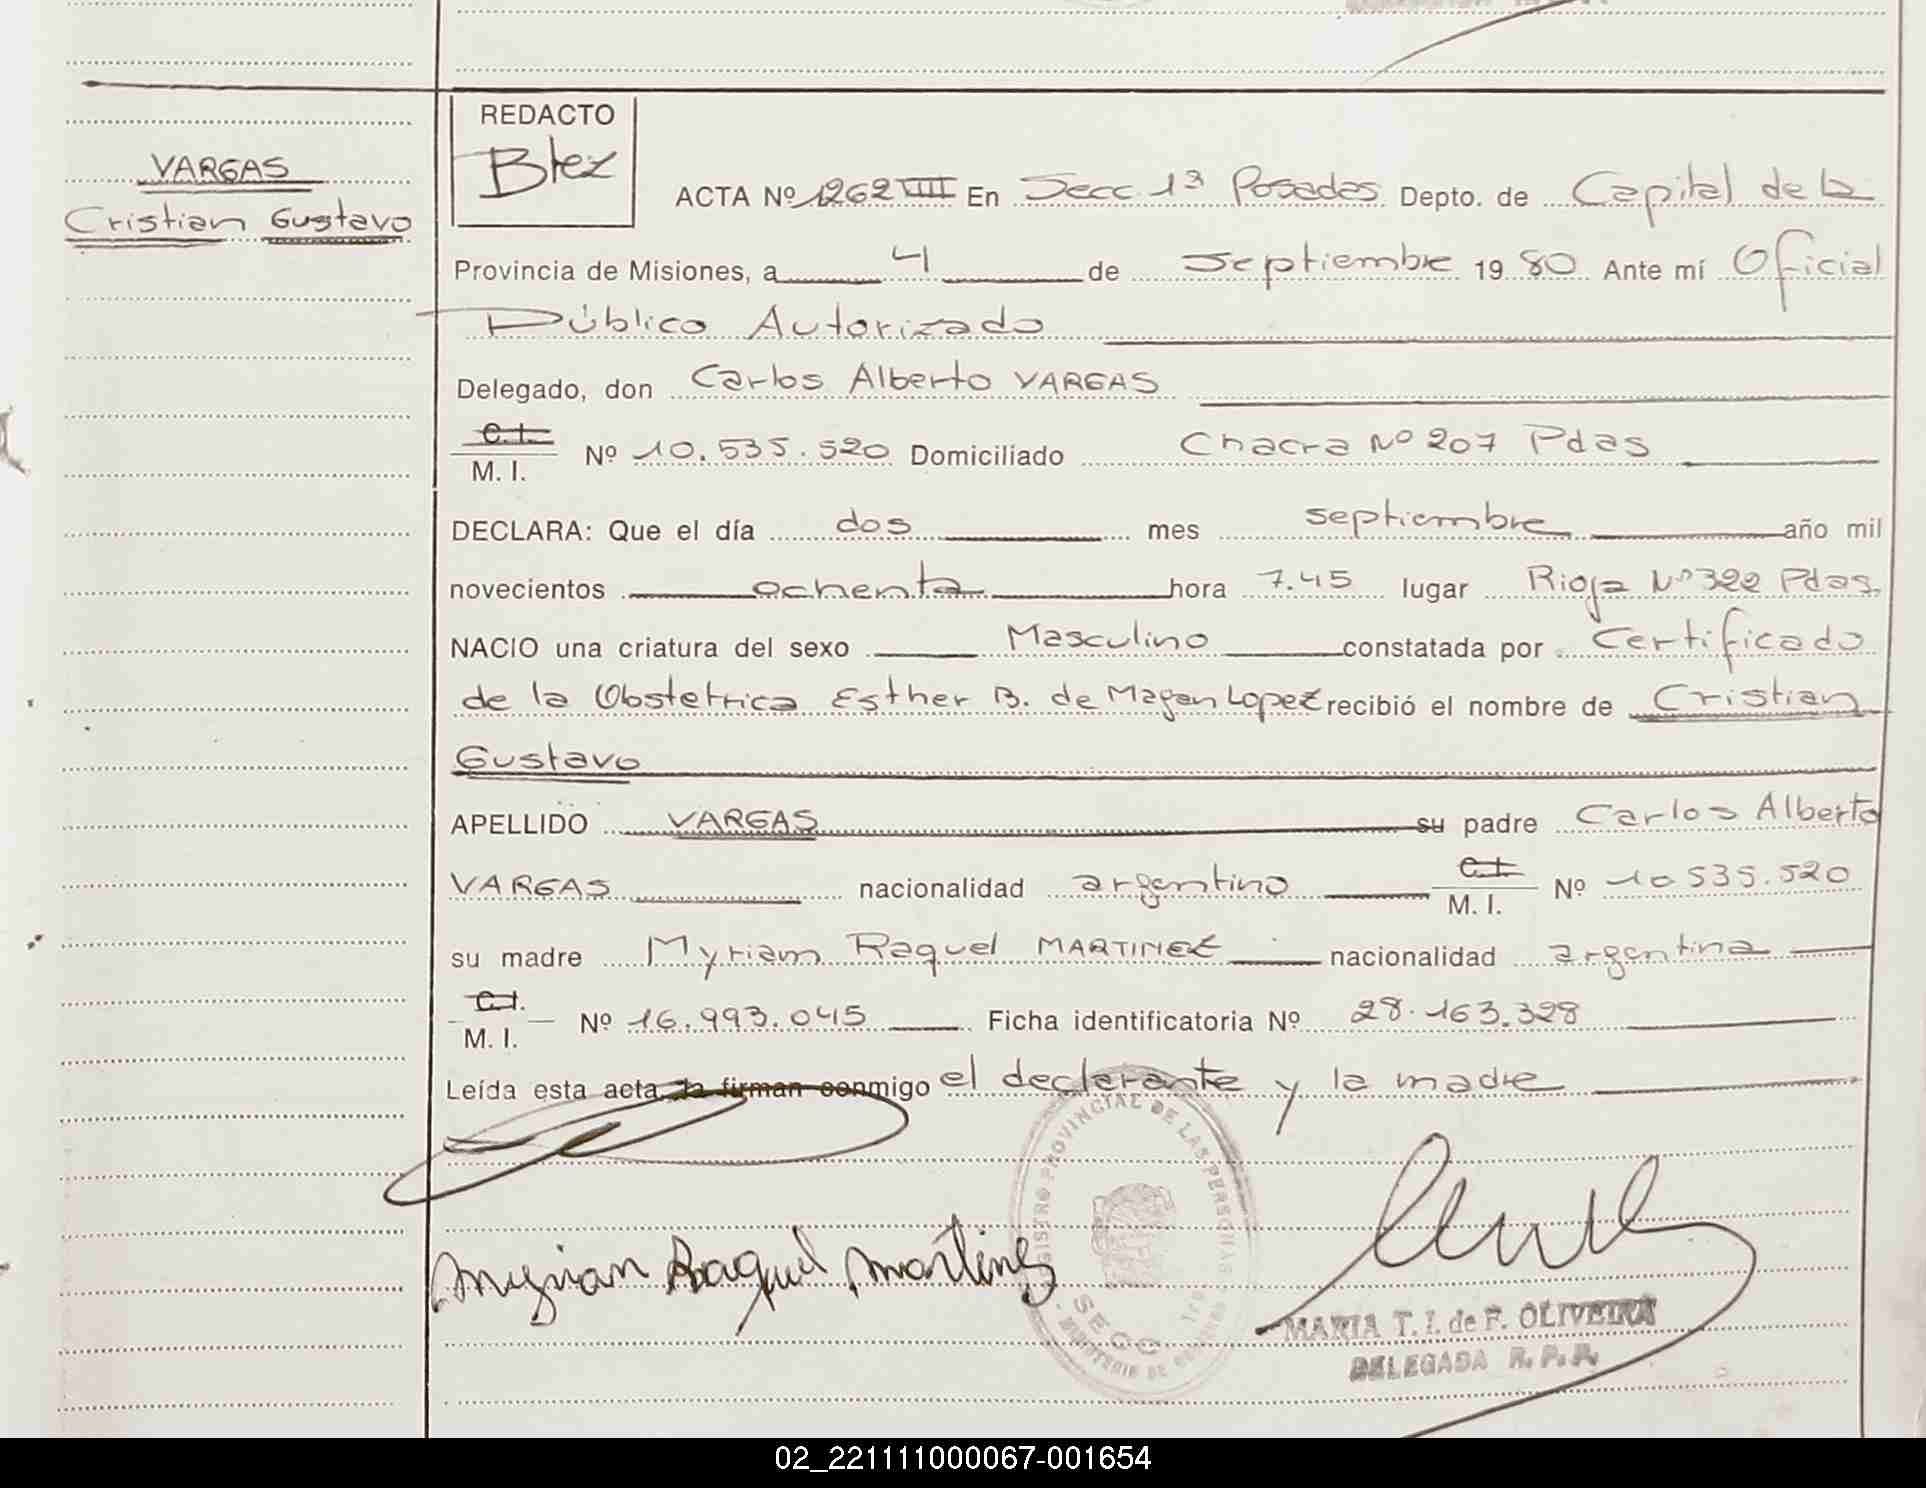 REDACTO
Btez
VARGAS
Cristian Gustavo
ACTA Nº 1262 VIII En Secc 1ª Posadas Depto. de Capital de la
Provincia de Misiones, a 4 de Septiembre 19 80 Ante mí Oficial
Público Autorizado
Delegado, don Carlos Alberto VARGAS
C.I.
M. I. Nº 10.535.520 Domiciliado Chacra Nº 207 Pdas
DECLARA: Que el día dos mes septiembre año mil
novecientos ochenta hora 7.45 lugar Rioja Nº 322 Pdas.
NACIO una criatura del sexo Masculino constatada por Certificado
de la Obstetrica Esther B. de Magan Lopez recibió el nombre de Cristian
Gustavo
APELLIDO VARGAS su padre Carlos Alberto
VARGAS nacionalidad argentino C.I. M. I. Nº 10 535.520
su madre Myriam Raquel MARTINEZ nacionalidad argentina
C.I.
M. I. Nº 16.993.045 Ficha identificatoria Nº 28.163.328
Leída esta acta, la firman conmigo el declarante y la madre
REGISTRO PROVINCIAL DE LAS PERSONAS
SECC 1ra
Myrian Raquel Martinez
MARIA T. I. de F. OLIVEIRA
DELEGADA R. P. P.
02_221111000067-001654